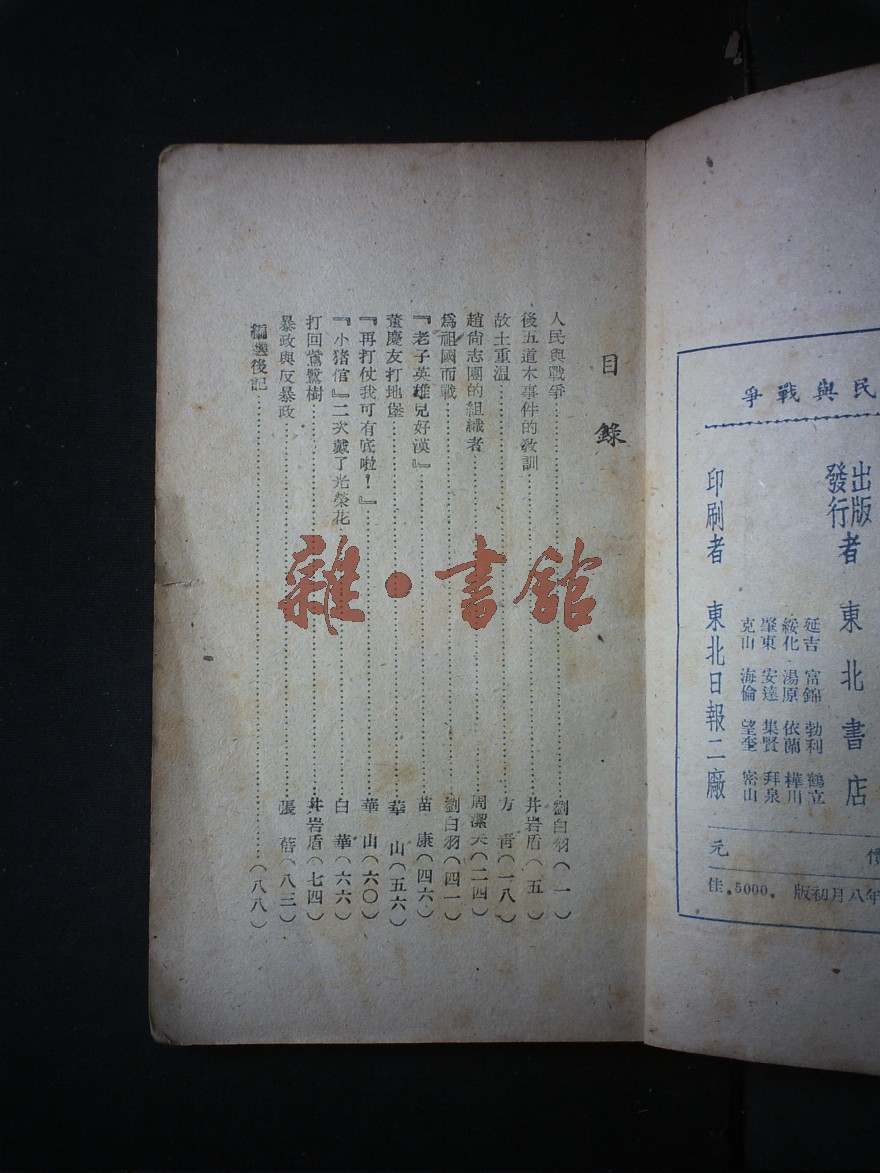 民與戰爭
出版
發行者 東北書店
延吉 富錦 勃利 鶴立
綏化 湯原 依蘭 樺川
肇東 安達 集賢 拜泉
克山 海倫 望奎 密山
印刷者 東北日報二廠
元
年八月初版 5000. 佳
目錄
人民與戰爭……劉白羽(一)
後五道木事件的教訓……井岩盾(五)
故土重温……方青(一八)
趙尚志團的組織者……周潔夫(二四)
爲祖國而戰……劉白羽(四一)
『老子英雄兒好漢』……苗康(四六)
董慶友打地堡……華山(五六)
『再打仗我可有底啦！』……華山(六〇)
『小猪倌』二次戴了光榮花……白華(六六)
打回鴛鴦樹……井岩盾(七四)
暴政與反暴政……張蓓(八三)
編選後記……(八八)
雜·書館